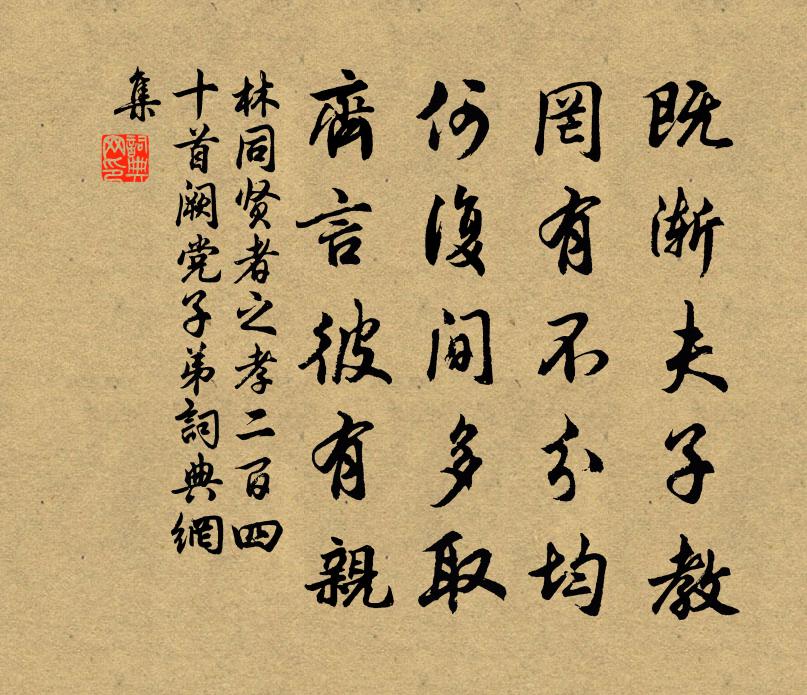 既渐夫子教
罔有不分均
何復间多取
齊言彼有親
林同贤者之孝二百四
十首阙党子弟詞典網
集
詞典
网印